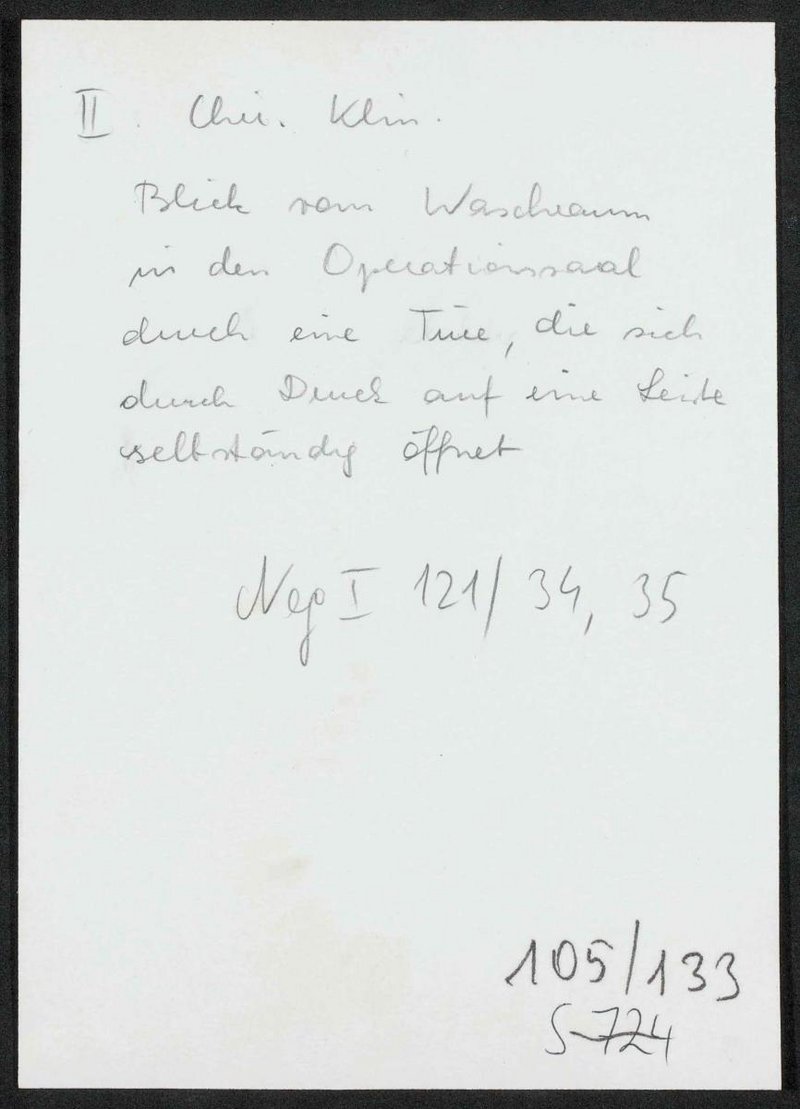 II. Chir. Klin.
Blick vom Waschraum
in den Operationssaal
durch eine Türe, die sich
durch Druck auf eine Leiste
selbständig öffnet
Neg I 121/34, 35
105/133
S 724